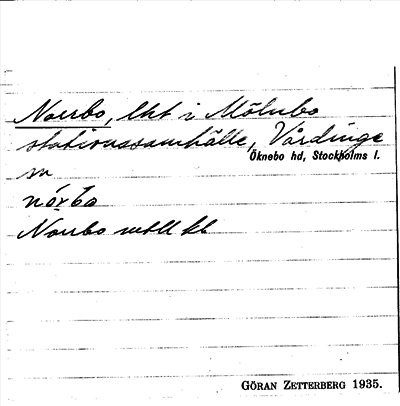 Norrbo, lht i Mölnbo
stationssamhälle, Vårdinge
Öknebo hd, Stockholms l.
sn
Norrbo
GÖRAN ZETTERBERG 1935.